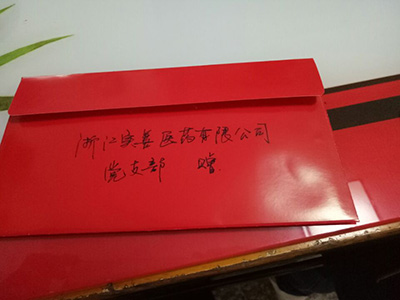 浙江宝善医药有限公司
党支部 赠